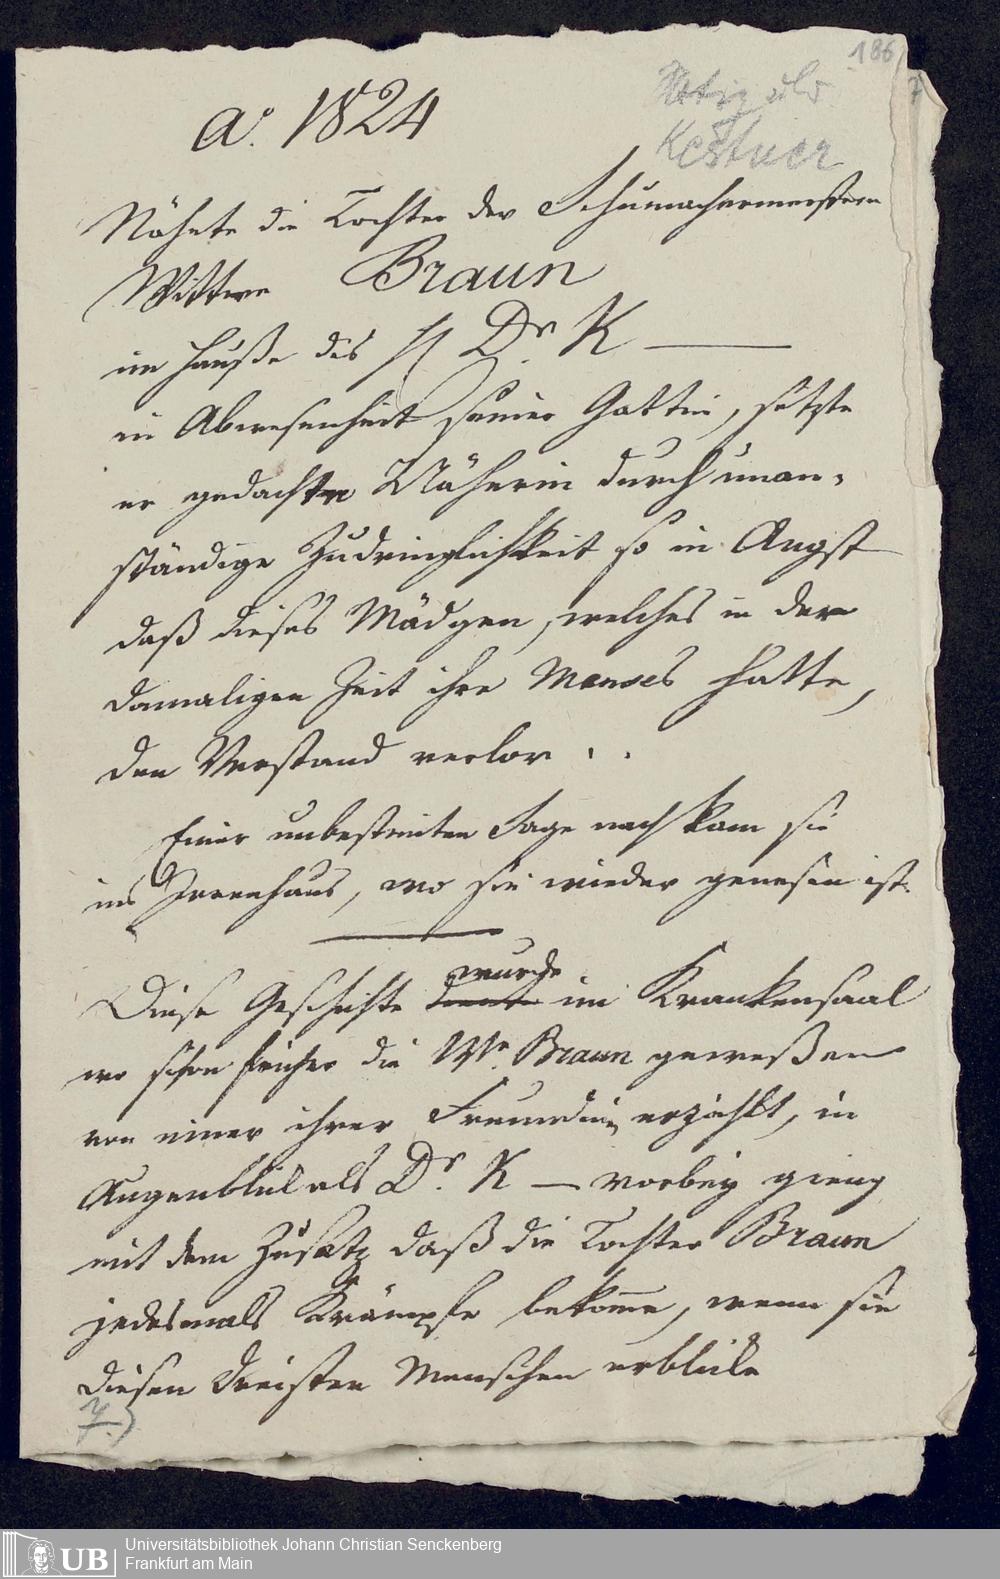 186
7
Notiz über
Kestner
aº. 1824
Nähete die Tochter der Schumachermeistern
Wittwe Braun
im Hauße des H Dr. K —
in Abwesenheit seiner Gattin, sezte
er gedachte Näherin durch unan-
ständige Zudringlichkeit so in Angst
daß dieses Mädgen, welches in der
damaligen Zeit ihre Menses hatte,
den Verstand verlor . .
Einer unbestrittenen Sage nach kam sie
ins Irrenhaus, wo sie wieder genesen ist.
wurde
Diese Geschichte im Krankensaal
wo schon früher die Wwe. Braun geweßen
von einer ihrer Freundin erzählt, in
Augenblick als Dr. K — vorbey gieng
mit dem Zusatz daß die Tochter Braun
jedesmals Krämpfe bekome, wenn sie
diesen dreisten Menschen erblicke
7.)
UB
Universitätsbibliothek Johann Christian Senckenberg
Frankfurt am Main